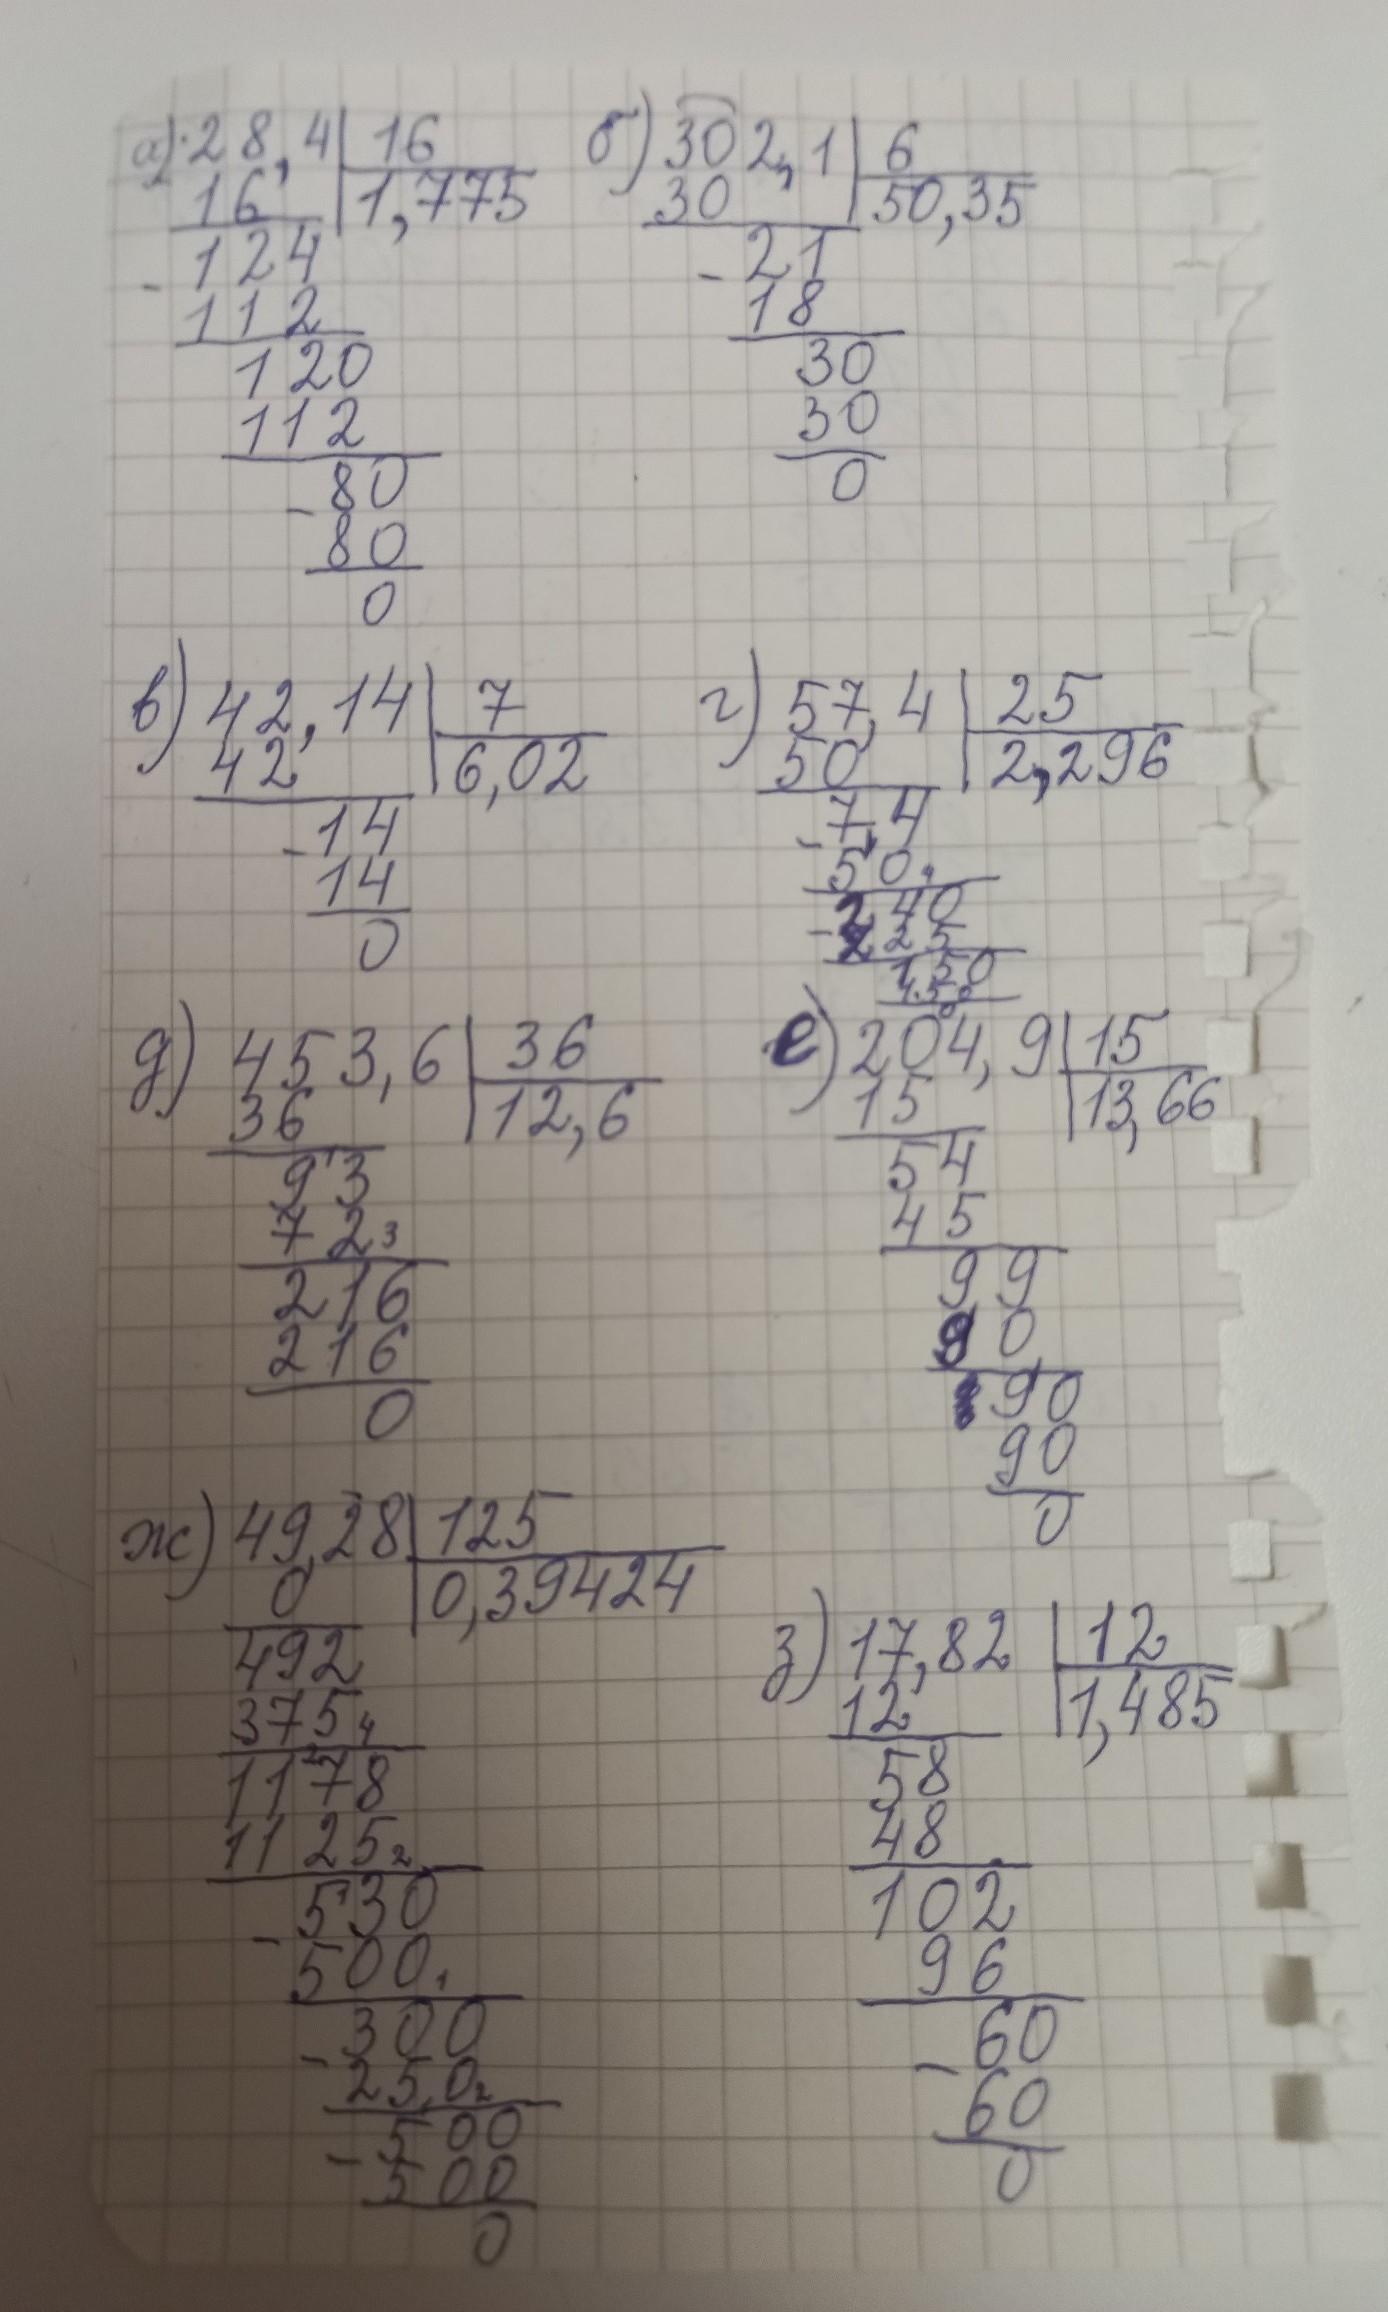 а) 28,4 16
16 1,775
- 124
112
120
112
- 80
80
0
б) 302,1 6
30 50,35
- 21
18
30
30
0
в) 42,14 7
42 6,02
- 14
14
0
г) 57,4 25
50 2,296
- 74
50
- 240
225
150
150
0
д) 453,6 36
36 12,6
93
72 3
216
216
0
е) 204,9 15
15 13,66
54
45
99
90
90
90
0
ж) 49,28 125
0 0,39424
492
375 4
1178
1125 2
- 530
500 1
- 300
250 2
- 500
500
0
з) 17,82 12
12 1,485
58
48
102
96
- 60
60
0